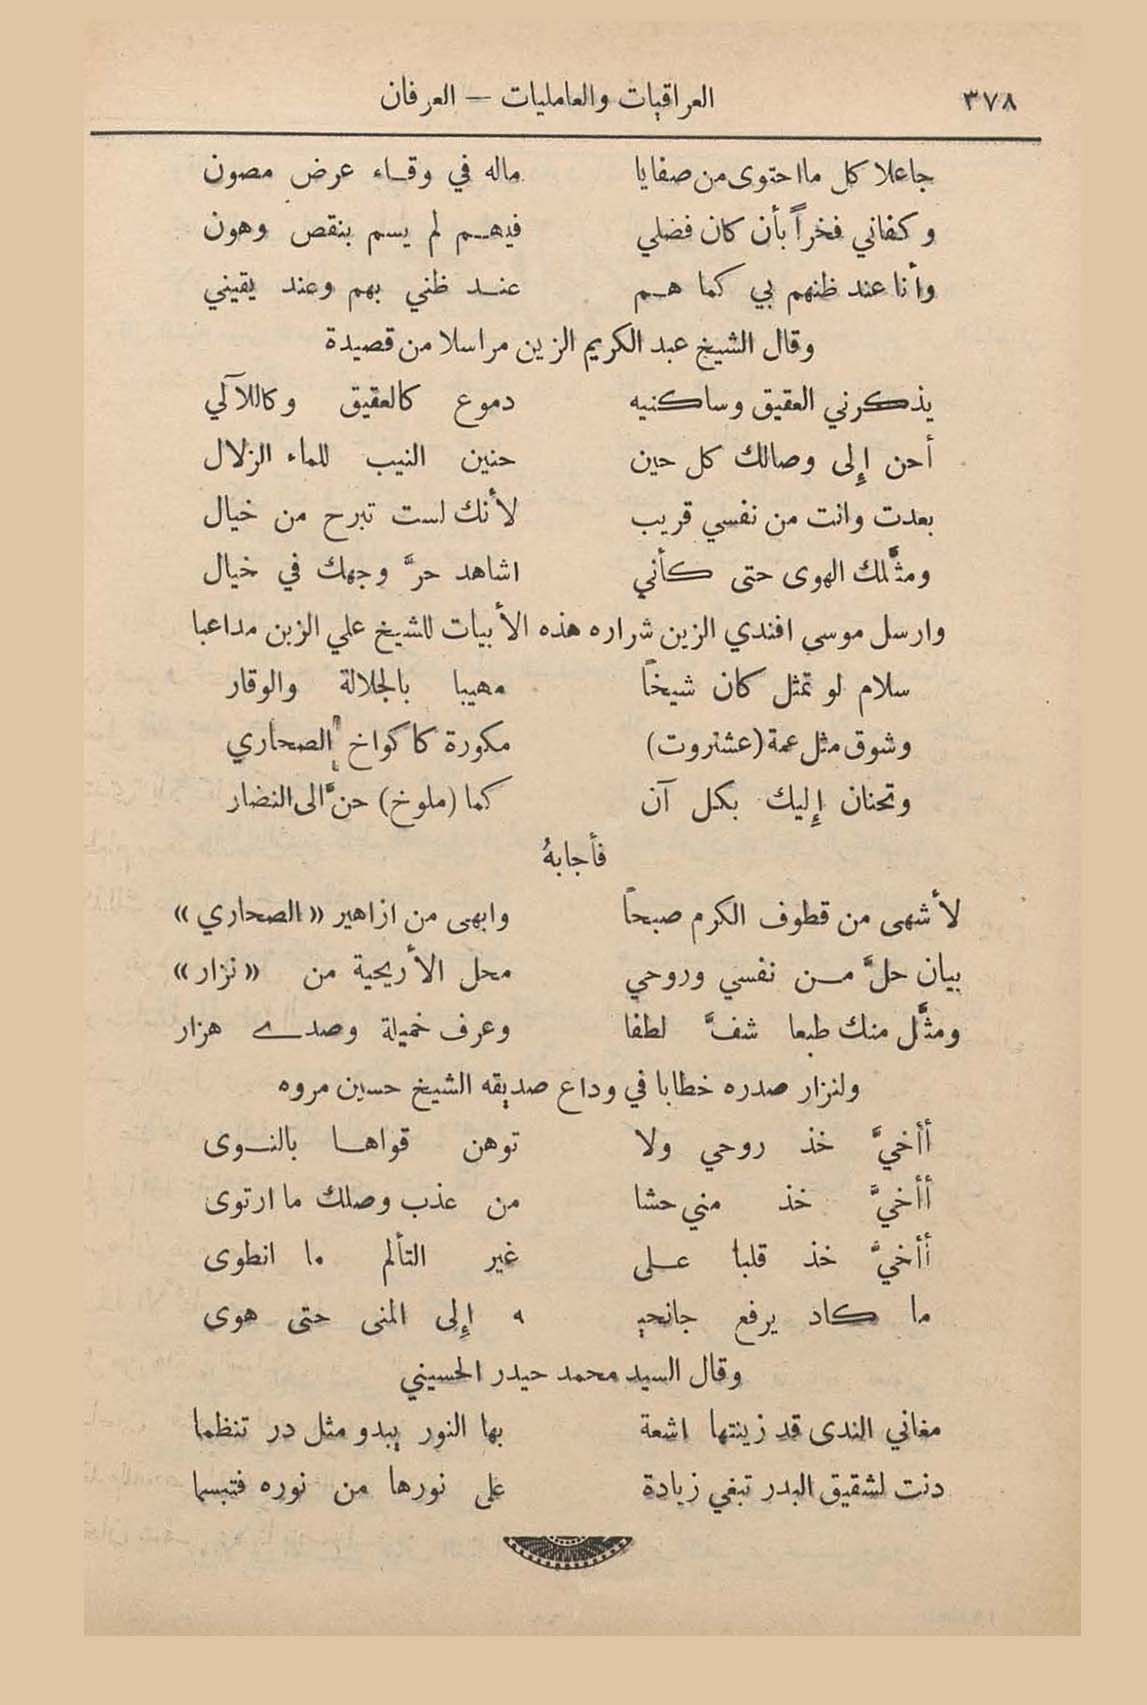 ٣٧٨ العراقيات والعامليات — العرفان
جاعلا كل ما احتوى من صفايا ماله في وقاء عرض مصون
وكفاني فخراً بأن كان فضلي فيهم لم يسم بنقص وهون
وأنا عند ظنهم بي كما هم عند ظني بهم وعند يقيني
وقال الشيخ عبد الكريم الزين مراسلا من قصيدة
يذكرني العقيق وساكنيه دموع كالعقيق وكاللآلي
أحن إلى وصالك كل حين حنين النيب للماء الزلال
بعدت وانت من نفسي قريب لأنك لست تبرح من خيال
ومثَّلك الهوى حتى كأني اشاهد حرَّ وجهك في خيال
وارسل موسى افندي الزين شراره هذه الأبيات للشيخ علي الزين مداعبا
سلام لو تمثل كان شيخاً مهيبا بالجلالة والوقار
وشوق مثل عمة (عشتروت) مكورة كاكواخ الصحاري
وتحنان إليك بكل آن كما (ملوخ) حنَّ الى النضار
فأجابهُ
لأشهى من قطوف الكرم صبحاً وابهى من ازاهير «الصحاري»
بيان حلَّ من نفسي وروحي محل الأريحية من «نزار»
ومثَّل منك طبعا شفَّ لطفا وعرف خميلة وصدى هزار
ولنزار صدره خطابا في وداع صديقه الشيخ حسين مروه
أأخيَّ خذ روحي ولا توهن قواها بالنوى
أأخيَّ خذ مني حشا من عذب وصلك ما ارتوى
أأخيَّ خذ قلبا على غير التألم ما انطوى
ما كاد يرفع جانحيـ ـه إلى المنى حتى هوى
وقال السيد محمد حيدر الحسيني
مغاني الندى قد زينتها اشعة بها النور يبدو مثل در تنظما
دنت لشقيق البدر تبغي زيادة على نورها من نوره فتبسما